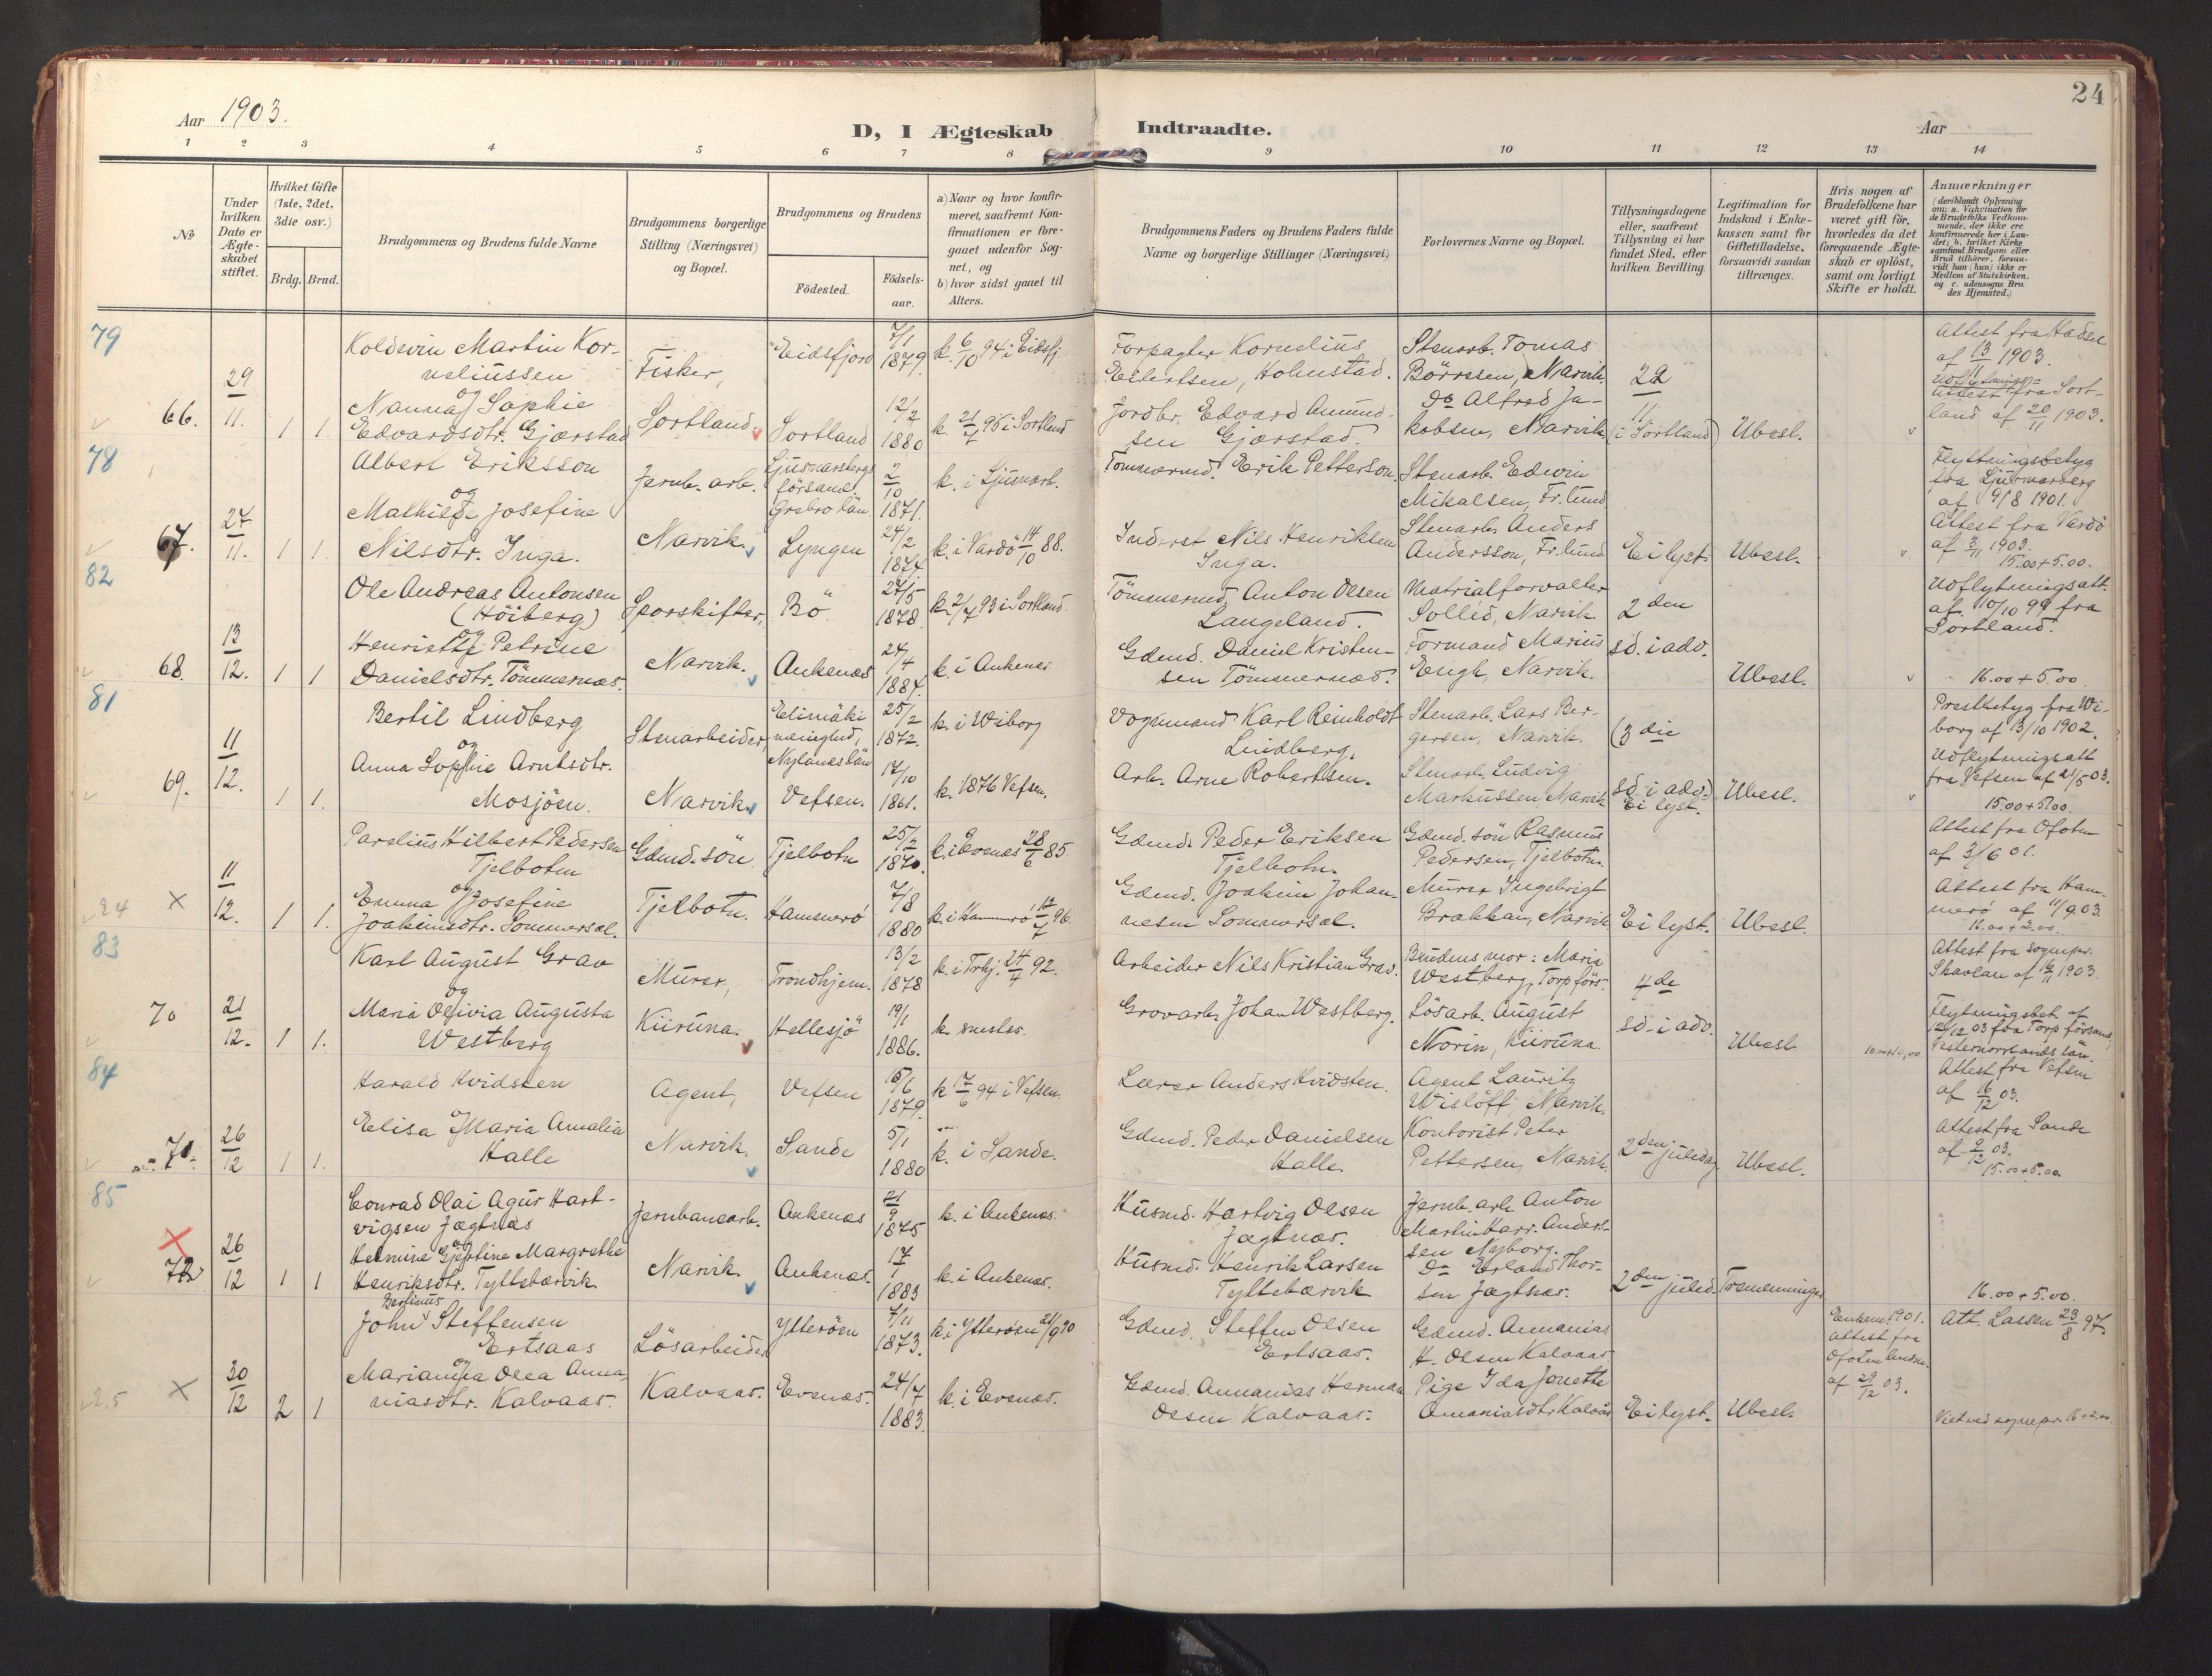 Aar 1903.
D, I Ægteskab Indtraadte.
Aar
24
1 2 3 4 5 6 7 8 9 10 11 12 13 14
No
Under hvilken Dato er Ægteskabet stiftet.
Hvilket Gifte (1ste, 2det, 3die osv.)
Brdg. Brud.
Brudgommens og Brudens fulde Navne
Brudgommens borgerlige Stilling (Næringsvei) og Bopæl.
Brudgommens og Brudens
Födested.
Födsels-aar.
a) Naar og hvor konfirmeret, saafremt Konfirmationen er foregaaet udenfor Sognet, og
b) hvor sidst gaaet til Alters.
Brudgommens Faders og Brudens Faders fulde Navne og borgerlige Stillinger (Næringsvei)
Forlovernes Navne og Bopæl.
Tillysningsdagene eller, saafremt Tillysning ei har fundet Sted, efter hvilken Bevilling.
Legitimation for Indskud i Enkekassen samt for Giftetilladelse, forsaavidt saadan tiltrænges.
Hvis nogen af Brudefolkene har været gift för, hvorledes da det foregaaende Ægteskab er oplöst, samt om lovligt Skifte er holdt.
Anmærkninger (deriblandt Oplysning om: a. Vakcination for de Brudefolks Vedkommende, der ikke ere konfirmerede her i Landet; b. hvilket Kirkesamfund Brudgom eller Brud tilhører, forsaavidt han (hun) ikke er Medlem af Statskirken, og c. udensogns Brudes Hjemsted.)
79
66.
29/11.
1 1
Koldevin Martin Kor-
neliussen
og
Nanna Sophie
Edvardsdtr. Gjærstad
Fisker,
Sortland.
Eidsfjord
7/1 1879.
k. 6/10 94 i Eidsfj.
Sortland
12/2 1880
k. 21/7 95 i Sortland
Forpagter Kornelius
Eilertsen, Holmstad.
Jordbr. Edvard Amund-
sen Gjærstad.
Stenarb. Tomas
Börresen, Narvik.
Do Alfred Ja-
kobsen, Narvik
22/11
(i Sortland)
Ubesl.
Attest fra Hadsel
af 13/11 1903.
Udflytnings-
attest fra Sort-
land af 20/11 1903.
78
67.
27/11.
1 1
Albert Eriksson
og
Mathilde Josefine
Nilsdtr. Inga.
Jernb. arb.
Narvik.
Ljusnarsbergs
församl.
Örebro län
2/10 1871.
k. i Ljusnarb.
Lyngen
24/2 1874
k. i Vardö 14/10 88.
Tömmermd. Erik Petterson
Inderst Nils Henriksen
Inga.
Stenarb. Edwin
Mikalsen, Fr.lund
Stenarb. Anders
Andersson, Fr.lund
Ei lyst.
Ubesl.
Flyttningsbetyg
fra Ljusnarsberg
af 9/8 1901.
Attest fra Vardö
af 3/11 1903.
15.00 + 5.00.
82
68.
13/12.
1 1
Ole Andreas Antonsen
(Höiberg)
og
Henriette Petrine
Danielsdtr. Tömmernæs.
Sporskifter,
Narvik.
Bö
24/5 1878.
k. 2/7 93 i Sortland.
Ankenæs
24/4 1884.
k. i Ankenæs
Tömmermd. Anton Olsen
Langeland.
Gdmd. Daniel Kristen-
sen Tömmernæs.
Matrialforvalter
Sollid, Narvik
Formand Marius
Engh, Narvik.
2 den
sd. i adv.
Ubesl.
Udflytningsatt.
af 10/10 99 fra
Sortland.
16.00 + 5.00.
81
69.
11/12.
1 1
Bertil Lindberg
og
Anna Sophie Arntsdtr.
Mosjöen.
Stenarbeider,
Narvik.
Elimäki
menighed,
Nylands län
25/2 1872.
k. i Wiborg
Vefsen.
17/10 1861.
k. 1876 Vefsen.
Vognmand Karl Reinholdt
Lindberg.
Arb. Arne Robertsen.
Stenarb. Lars Ber-
gersen, Narvik.
Stenarb. Ludvig
Markussen Narvik
(3 die
sd. i adv.)
Ei lyst.
Ubesl.
Prestbetyg fra Wi-
borg af 13/10 1902.
Udflytningsatt
fra Vefsen af 21/5 03.
15.00 + 5.00.
24
11/12.
1 1.
Parelius Hilbert Pedersen
Tjelbotn
og
Emma Josefine
Joakimsdtr. Sommersæl.
Gdmd. sön
Tjelbotn.
Tjelbotn
25/2 1870.
k. i Evenæs 28/6 85.
Hammerö
7/8 1880
k. i Hammerö 12/7 96.
Gdmd. Peder Eriksen
Tjelbotn.
Gdmd. Joakim Johan-
nesen Sommersæl.
Gdmd. sön Rasmus
Pedersen, Tjelbotn.
Murer Ingebrigt
Brækkan, Narvik
Ei lyst.
Ubesl.
Attest fra Ofoten
af 3/6 01.
Attest fra Ham-
merö af 11/9 03.
16.00 + 2.00.
83
70
21/12.
1 1.
Karl August Grav
og
Maria Olivia Augusta
Westberg
Murer,
Kiiruna.
Trondhjem.
13/2 1878
k. i Trhj. 24/4 92.
Hellesjö
19/1 1886.
Arbeider Nils Kristian Grav.
Grovarb. Johan Westberg.
Brudens mor: Maria
Westberg, Torp förs.
Lösarb. August
Norin, Kiiruna.
4 de
sd. i adv.
Ubesl.
Attest fra sognepr.
Skavlan af 16/11 1903.
Flytningsbet. af
12/12 03 fra Torp församl,
Vesternorrlands län.
84
71.
26/12
1 1.
Harald Hvidsten
og
Elisa Maria Amalia
Halle
Agent,
Narvik.
Vefsen
1879.
k 17/6 94 i Vefsen.
Sande
5/1 1880
k. i Sande.
Lærer Anders Hvidsten.
Gdmd. Peder Danielsen
Halle.
Agent Lauritz
Wislöff, Narvik.
Kontorist Peter
Pettersen, Narvik
2 den juledag
Ubesl.
Attest fra Vefsen
af 16/12 03.
Attest fra Sande
af 9/12 03.
15.00 + 5.00.
85
72
26/12
1 1
Conrad Olai Agur Hart-
vigsen Jægtnæs
og
Helmine Gjertine Margrethe
Henriksdtr. Tyttebærvik
Jernbanearb.
Narvik.
Ankenæs
21/9 1875
k. i Ankenæs.
Ankenæs.
17/1 1883
k. i Ankenæs.
Husmd. Hartvig Olsen
Jægtnæs.
Husmd. Henrik Larsen
Tyttebærvik
Jernb. arb. Anton
Martin Harr. Anders-
sen Nyborg.
Do Erland Thor-
sen Jægtnæs.
2 den juled.
Tremenninger
16.00 + 5.00.
25
30/12
2 1
Bertinus
John Steffensen
Ertsaas
og
Olea Anna-
niasdtr. Kalvaas.
Lösarbeider
Kalvaas.
Ytterøen
7/11 1873.
k. i Ytterøen 21/9 90
Evenæs.
24/7 1883.
k. i Evenæs.
Gdmd. Steffen Olsen
Ertsaas.
Gdmd. Annanias Herman
Olsen Kalvaas.
Gdmd. Annanias
H. Olsen Kalvaas
Pige Ida Jonette
Ananiasdtr. Kalvaas
Ei lyst.
Ubesl.
Enkem. 1901.
Attest fra
Ofoten
af 29/12 03.
Att. Lassen 23/8 97.